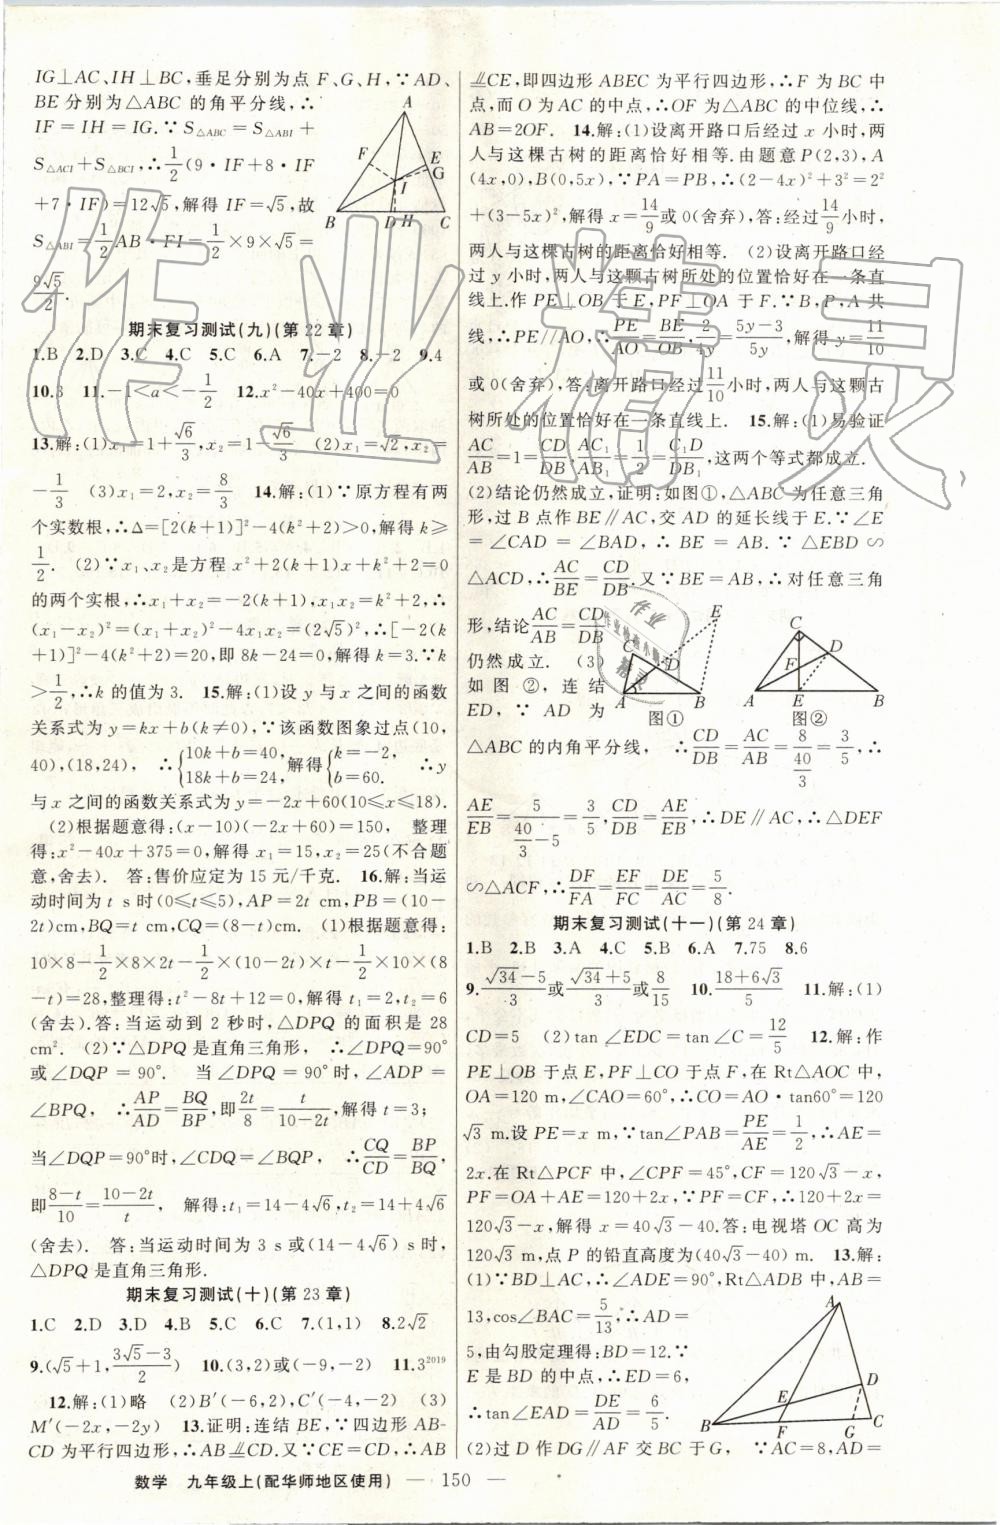 IG⊥AC、IH⊥BC,垂足分别为点 F、G、H,∵AD、
BE 分别为△ABC 的角平分线,∴
IF=IH=IG.∵S△ABC=S△ABI+
S△ACI+S△BCI,∴1/2(9·IF+8·IF
+7·IF)=12√5,解得 IF=√5,故
S△ABI=1/2AB·FI=1/2×9×√5=
9√5/2.
A
F
E
G
I
B
D
H
C
期末复习测试(九)(第 22 章)
1.B 2.D 3.C 4.C 5.C 6.A 7.-2 8.-2 9.4
10.3 11.-1<a<-1/2 12.x²-40x+400=0
13.解:(1)x₁=1+√6/3,x₂=1-√6/3 (2)x₁=√2,x₂=
-1/3 (3)x₁=2,x₂=8/3 14.解:(1)∵原方程有两
个实数根,∴Δ=[2(k+1)]²-4(k²+2)>0,解得k≥
1/2. (2)∵x₁、x₂是方程 x²+2(k+1)x+k²+2=0
的两个实根,∴x₁+x₂=-2(k+1),x₁x₂=k²+2,∴
(x₁-x₂)²=(x₁+x₂)²-4x₁x₂=(2√5)²,∴[-2(k
+1)]²-4(k²+2)=20,即 8k-4=20,解得 k=3.∵k
>1/2,∴k 的值为 3. 15.解:(1)设 y 与 x 之间的函数
关系式为 y=kx+b(k≠0),∵该函数图象过点(10,
40),(18,24), ∴{10k+b=40, 18k+b=24,解得{k=-2, b=60. ∴y
与 x 之间的函数关系式为 y=-2x+60(10≤x≤18).
(2)根据题意得:(x-10)(-2x+60)=150, 整理
得:x²-40x+375=0,解得 x₁=15,x₂=25(不合题
意,舍去). 答:售价应定为 15 元/千克. 16.解:当运
动时间为 t s时(0≤t≤5),AP=2t cm,PB=(10-
2t)cm,BQ=t cm,CQ=(8-t)cm. (1)根据题意得:
10×8-1/2×8×2t-1/2×(10-2t)×t-1/2×10×(8
-t)=28,整理得:t²-8t+12=0,解得 t₁=2,t₂=6
(舍去).答:当运动到 2 秒时,△DPQ 的面积是 28
cm². (2)∵△DPQ 是直角三角形, ∴∠DPQ=90°
或∠DQP = 90°. 当∠DPQ = 90°时,∠ADP =
∠BPQ, ∴AP/AD=BQ/BP,即2t/8=t/(10-2t),解得 t=3;
当∠DQP=90°时,∠CDQ=∠BQP, ∴CQ/CD=BP/BQ,
即(8-t)/10=(10-2t)/t, 解得:t₁=14-4√6,t₂=14+4√6
(舍去). 答:当运动时间为 3 s或(14-4√6) s时,
△DPQ 是直角三角形.
期末复习测试(十)(第 23 章)
1.C 2.D 3.D 4.B 5.C 6.C 7.(1,1) 8.2√2
9.(√5+1,(3√5-3)/2) 10.(3,2)或(-9,-2) 11.3²⁰¹⁹
12.解:(1)略 (2)B′(-6,2),C′(-4,-2) (3)
M′(-2x,-2y) 13.证明:连结 BE,∵四边形 AB-
CD 为平行四边形,∴AB⫽CD.又∵CE=CD,∴AB
⫽CE,即四边形 ABEC 为平行四边形,∴F 为 BC 中
点,而 O 为 AC 的中点,∴OF 为△ABC 的中位线,∴
AB=2OF. 14.解:(1)设离开路口后经过 x 小时,两
人与这棵古树的距离恰好相等.由题意 P(2,3),A
(4x,0),B(0,5x),∵PA=PB,∴(2-4x)²+3²=2²
+(3-5x)²,解得 x=14/9或0(舍弃),答:经过14/9小时,
两人与这棵古树的距离恰好相等. (2)设离开路口经
过 y 小时,两人与这颗古树所处的位置恰好在一条直
线上.作 PE⊥OB 于 E,PF⊥OA 于 F.∵B、P、A 共
线,∴PE//AO,∴PE/AO=BE/OB,2/4y=(5y-3)/5y,解得 y=11/10
或0(舍弃),答:离开路口经过11/10小时,两人与这颗古
树所处的位置恰好在一条直线上. 15.解:(1)易验证
AC/AB=1=CD/DB,AC₁/AB₁=1/2=C₁D/DB₁,这两个等式都成立.
(2)结论仍然成立,证明:如图①,△ABC 为任意三角
形,过 B 点作 BE∥AC,交 AD 的延长线于 E.∵∠E
=∠CAD=∠BAD,∴BE=AB.∵△EBD∽
△ACD,∴AC/BE=CD/DB.又∵BE=AB,∴对任意三角
形,结论AC/AB=CD/DB
仍然成立. (3)
如 图 ②,连 结
ED,∵AD 为
E
C
D
A
B
图①
C
F
D
A
E
B
图②
△ABC 的内角平分线, ∴CD/DB=AC/AB=8/(40/3)=3/5,∴
AE/EB=5/(40/3-5)=3/5,CD/DB=AE/EB,∴DE∥AC,∴△DEF
∽△ACF,∴DF/FA=EF/FC=DE/AC=5/8.
期末复习测试(十一)(第 24 章)
1.B 2.B 3.A 4.C 5.B 6.A 7.75 8.6
9.(√34-5)/3或(√34+5)/3或8/15 10.(18+6√3)/5 11.解:(1)
CD=5 (2)tan∠EDC=tan∠C=12/5 12.解:作
PE⊥OB 于点 E,PF⊥CO 于点 F,在 Rt△AOC 中,
OA=120 m,∠CAO=60°,∴CO=AO·tan60°=120
√3 m.设 PE=x m,∵tan∠PAB=PE/AE=1/2,∴AE=
2x.在 Rt△PCF 中,∠CPF=45°,CF=120√3-x,
PF=OA+AE=120+2x,∵PF=CF,∴120+2x=
120√3-x,解得 x=40√3-40.答:电视塔 OC 高为
120√3 m,点 P 的铅直高度为(40√3-40) m. 13.解:
(1)∵BD⊥AC,∴∠ADE=90°,Rt△ADB 中,AB=
13,cos∠BAC=5/13,∴AD=
5,由勾股定理得:BD=12.∵
E 是 BD 的中点,∴ED=6,
∴tan∠EAD=DE/AD=6/5.
A
D
E
B
F
G
C
(2)过 D 作 DG∥AF 交 BC 于 G, ∵AC=8,AD=
数学 九年级上(配华师地区使用) — 150 —
作业精灵
作业
作业检查小助手
精灵